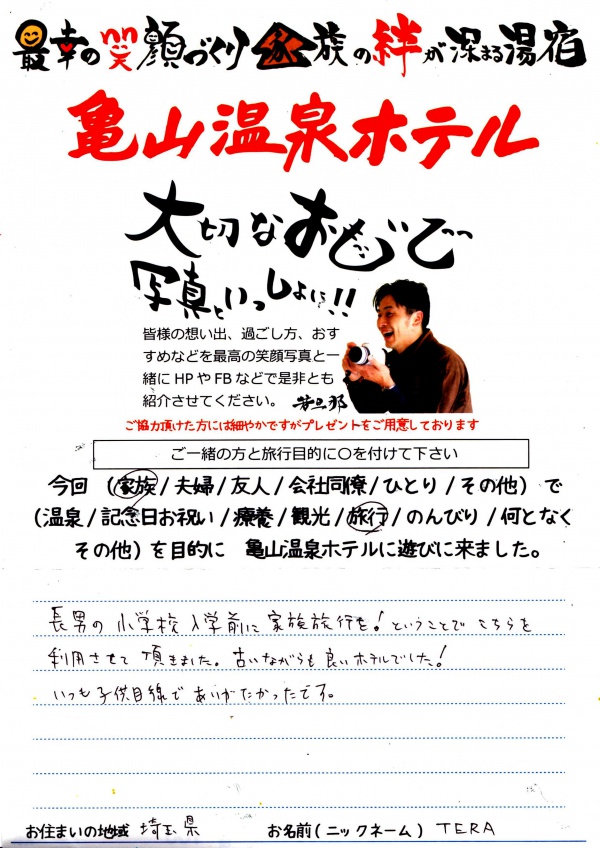 最幸の笑顔づくり 家族の絆が深まる湯宿
亀山温泉ホテル
大切なおもひで
写真といっしょに!!
皆様の想い出、過ごし方、おす
すめなどを最高の笑顔写真と一
緒に HP や FB などで是非とも
紹介させてください。 若旦那
ご協力頂けた方には細やかですがプレゼントをご用意しております
ご一緒の方と旅行目的に〇を付けて下さい
今回 (家族/夫婦/友人/会社同僚/ひとり/その他) で
(温泉/記念日お祝い/療養/観光/旅行/のんびり/何となく
その他) を目的に 亀山温泉ホテルに遊びに来ました。
長男の小学校入学前に家族旅行を!ということでこちらを
利用させて頂きました。古いながらも良いホテルでした!
いつも子供目線でありがたかったです。
お住まいの地域 埼玉県 お名前(ニックネーム) TERA